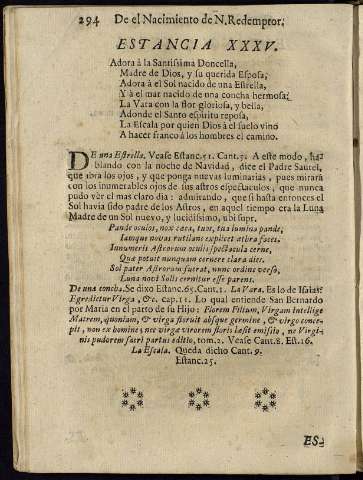 294 De el Nacimiento de N. Redemptor.
ESTANCIA XXXV.
Adora à la Santissima Doncella,
Madre de Dios, y su querida Esposa,
Adora à el Sol nacido de una Estrella,
Y à el mar nacido de una concha hermosa;
La Vara con la flor gloriosa, y bella,
Adonde el Santo espiritu reposa,
La Escala por quien Dios à el suelo vino
A hacer franco à los hombres el camino.
DE una Estrella. Vease Estanc. 51. Cant. 5. A este modo, ha-
blando con la noche de Navidad, dice el Padre Sautel,
que abra los ojos, y que ponga nuevas luminarias, pues mirarà
con los inumerables ojos de sus astros espectaculos, que nunca
pudo vèr el mas claro dia: admirando, que si hasta entonces el
Sol havia sido padre de los Astros, en aquel tiempo era la Luna
Madre de un Sol nuevo, y lucidissimo, ubi supr.
Pande oculos, nox cæca, tuos, tua lumina pande,
Iamque novas rutilans explicet æthra faces.
Innumeris Astrorum oculis spectacula cerne,
Quæ potuit nunquam cernere clara dies.
Sol pater Astrorum fuerat, nunc ordine verso,
Luna novi Solis cernitur esse parens.
De una concha. Se dixo Estanc. 65. Cant. 1. La Vara. Es lo de Isaias:
Egredietur Virga, &c. cap. 11. Lo qual entiende San Bernardo
por Maria en el parto de su Hijo: Florem Filium, Virgam intellige
Matrem, quoniam, & virga floruit absque germine, & virgo conce-
pit, non ex homine; nec virgæ virorem floris læsit emissio, ne Virgi-
nis pudorem sacri partus editio, tom. 2. Vease Cant. 8. Est. 16.
La Escala. Queda dicho Cant. 9.
Estanc. 25.
ES-